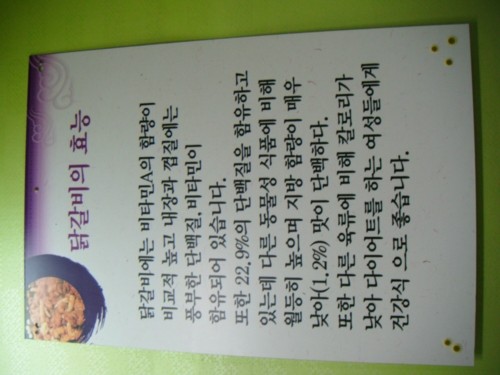 닭갈비의 효능
닭갈비에는 비타민A의 함량이
비교적 높고 내장과 껍질에는
풍부한 단백질, 비타민이
함유되어 있습니다.
또한 22.9%의 단백질을 함유하고
있는데 다른 동물성 식품에 비해
월등히 높으며 지방 함량이 매우
낮아(1.2%) 맛이 단백하다.
또한 다른 육류에 비해 칼로리가
낮아 다이어트를 하는 여성들에게
건강식 으로 좋습니다.